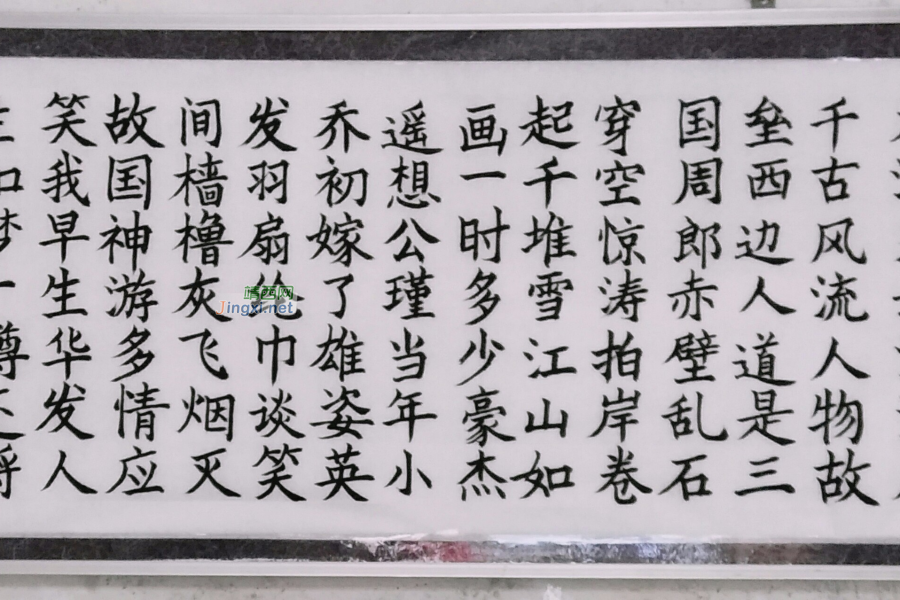 千古风流人物故
垒西边人道是三
国周郎赤壁乱石
穿空惊涛拍岸卷
起千堆雪江山如
画一时多少豪杰
遥想公瑾当年小
乔初嫁了雄姿英
发羽扇纶巾谈笑
间樯橹灰飞烟灭
故国神游多情应
笑我早生华发人
靖西网
Jingxi.net